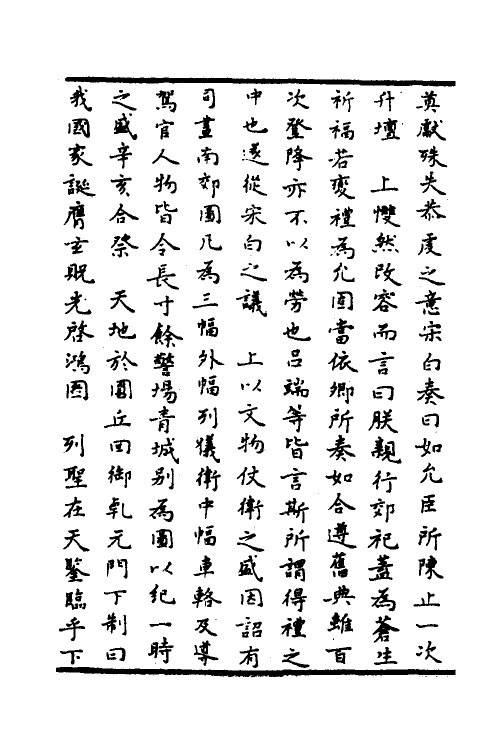 奠獻殊失恭虔之意宋白奏曰如允臣所陳止一次
升壇　上懼然改容而言曰朕親行郊祀蓋為蒼生
祈福若變禮為允固當依卿所奏如合遵舊典雖百
次登降亦不以為勞也呂端等皆言斯所謂得禮之
中也遂從宋白之議　上以文物仗衛之盛因詔有
司畫南郊圖凡為三幅外幅列儀衛中幅車輅及導
駕官人物皆令長寸餘警場青城别為圖以紀一時
之盛辛亥合祭　天地於圜丘回御乹元門下制曰
我國家誕膺玄貺光啓鴻圖　列聖在天鑒臨乎下